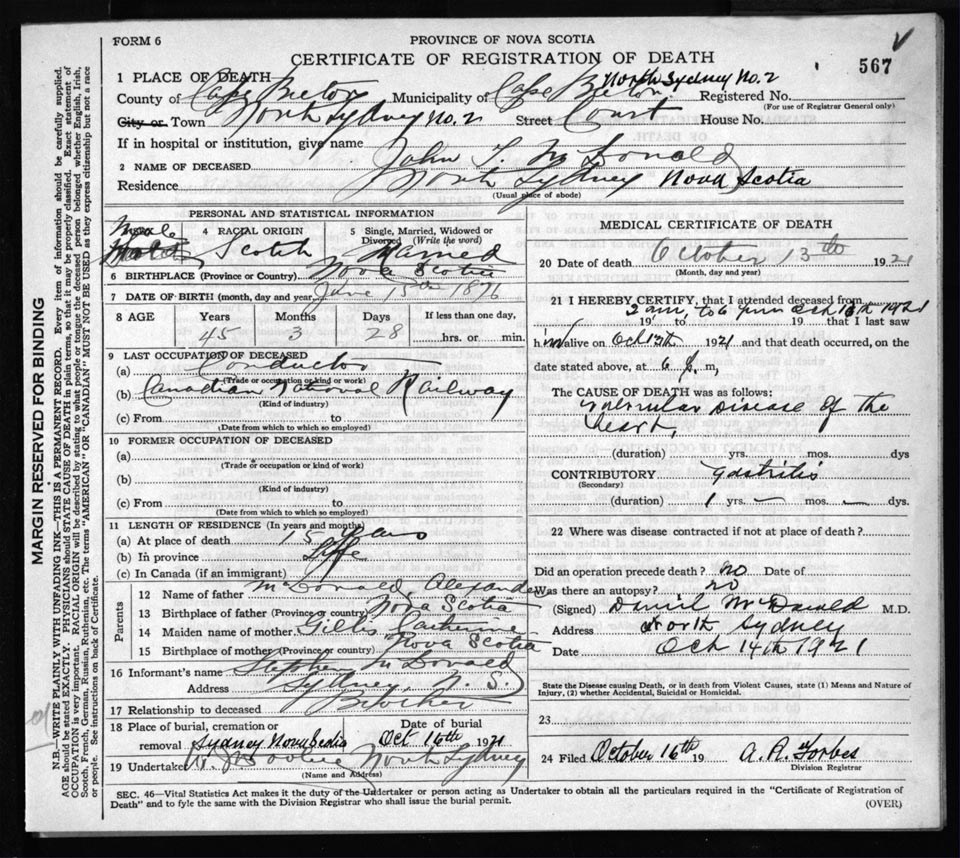 FORM 6
PROVINCE OF NOVA SCOTIA
CERTIFICATE OF REGISTRATION OF DEATH
567
1 PLACE OF DEATH
North Sydney No. 2
County of Cape Breton Municipality of Cape Breton Registered No.
(For use of Registrar General only)
City or Town North Sydney No. 2 Street Court House No.
If in hospital or institution, give name
2 NAME OF DECEASED John
Residence North Sydney Nova Scotia
(Usual place of abode)
PERSONAL AND STATISTICAL INFORMATION
Male
4 RACIAL ORIGIN Scotch
5 Single, Married, Widowed or Divorced (Write the word) Married
6 BIRTHPLACE (Province or Country) Nova Scotia
7 DATE OF BIRTH (month, day and year) June 15th 1876
8 AGE Years Months Days If less than one day,
45 3 28 hrs. or min.
9 LAST OCCUPATION OF DECEASED
(a) Conductor
(Trade or occupation or kind of work)
(b) Canadian National Railway
(Kind of industry)
(c) From to
(Date from which to which so employed)
10 FORMER OCCUPATION OF DECEASED
(a)
(Trade or occupation or kind of work)
(b)
(Kind of industry)
(c) From to
(Date from which to which so employed)
11 LENGTH OF RESIDENCE (In years and months)
(a) At place of death 15 years
(b) In province Life
(c) In Canada (if an immigrant)
Parents
12 Name of father McDonald, Alexander
13 Birthplace of father (Province or country) Nova Scotia
14 Maiden name of mother Gillis Catherine
15 Birthplace of mother (Province or country) Nova Scotia
16 Informant's name Stephen McDonald
Address Sydney, N. S.
17 Relationship to deceased Brother
18 Place of burial, cremation or removal Sydney Nova Scotia
Date of burial Oct 16th 1921
19 Undertaker North Sydney
(Name and Address)
MEDICAL CERTIFICATE OF DEATH
20 Date of death October 13th 1921
(Month, day and year)
21 I HEREBY CERTIFY, that I attended deceased from
2 am, to 6 pm Oct 13th 1921
19 to 19 that I last saw
him alive on Oct 13th 1921 and that death occurred, on the
date stated above, at 6 p. m,
The CAUSE OF DEATH was as follows:
Valvular Disease of the
heart,
(duration) yrs. mos. dys
CONTRIBUTORY Gastritis
(Secondary)
(duration) 1 yrs. — mos. — dys.
22 Where was disease contracted if not at place of death?
Did an operation precede death? no Date of
Was there an autopsy? no
(Signed) Daniel McDonald M.D.
Address North Sydney
Date Oct 14th 1921
State the Disease causing Death, or in death from Violent Causes, state (1) Means and Nature of
Injury, (2) whether Accidental, Suicidal or Homicidal.
23
24 Filed October 16th 19 A. R. Forbes
Division Registrar
SEC. 46—Vital Statistics Act makes it the duty of the Undertaker or person acting as Undertaker to obtain all the particulars required in the "Certificate of Registration of
Death" and to fyle the same with the Division Registrar who shall issue the burial permit.
(OVER)
MARGIN RESERVED FOR BINDING
N.B.—WRITE PLAINLY WITH UNFADING INK—THIS IS A PERMANENT RECORD. Every item of information should be carefully supplied.
AGE should be stated EXACTLY. PHYSICIANS should STATE CAUSE OF DEATH in plain terms, so that it may be properly classified. Exact statement of
OCCUPATION is very important. RACIAL ORIGIN will be described by stating to what people or tongue the deceased person belonged whether English, Irish,
Scotch, French, German, Russian, Ruthenian, etc. The terms "AMERICAN" OR "CANADIAN" MUST NOT BE USED as they express citizenship but not a race
or people. See instructions on back of Certificate.